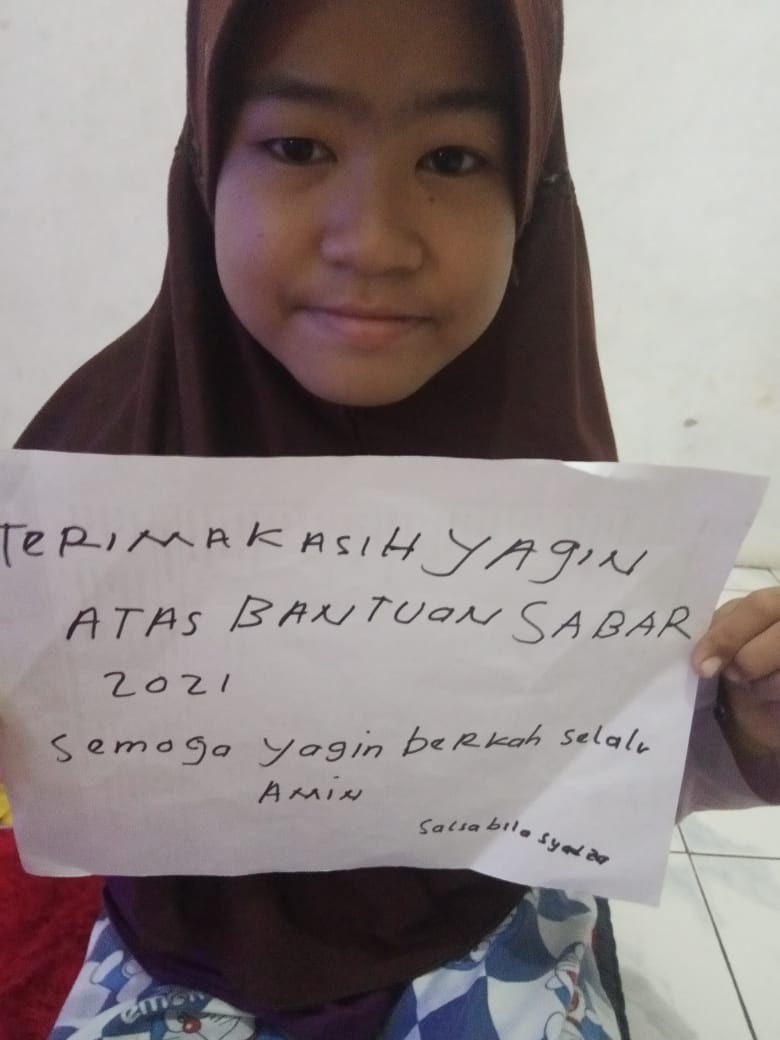 TERIMAKASIH YAGIN
ATAS BANTUAN SABAR
2021
Semoga yagin berkah selalu
AMIN
Salsabila syadza